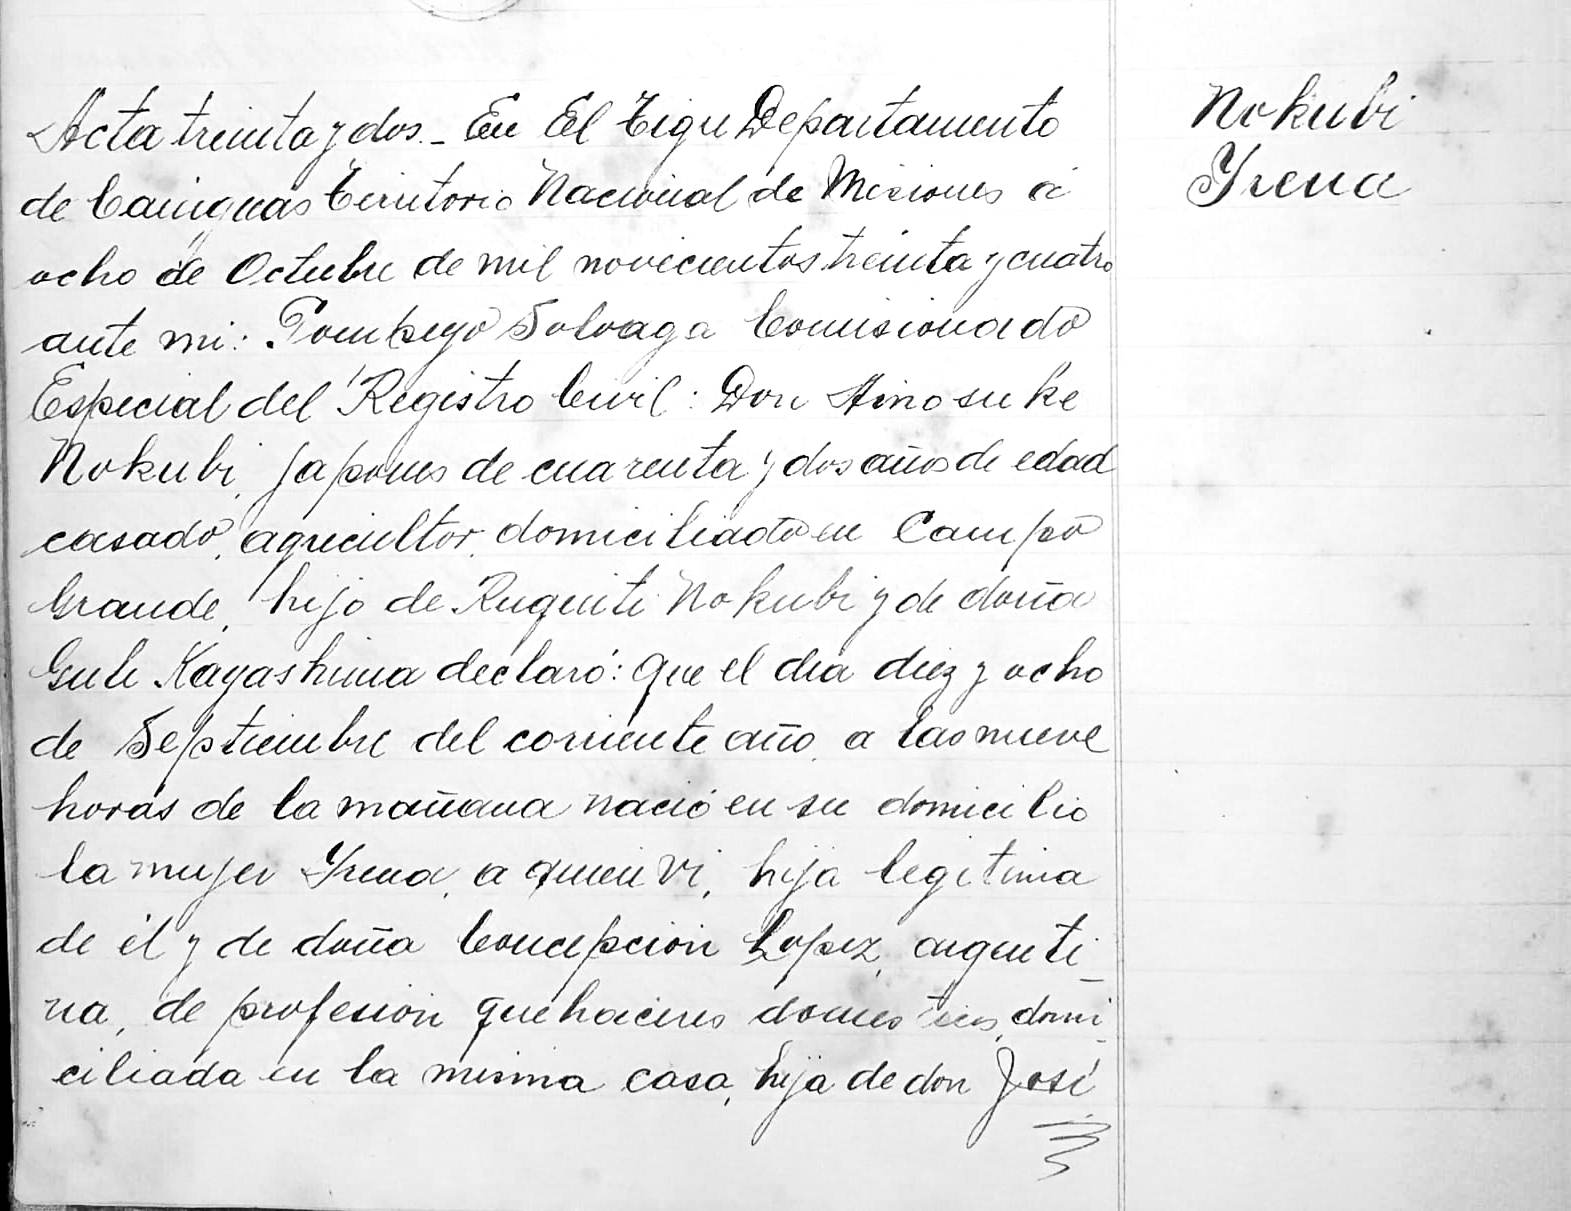 Acta treinta y dos.- En El Tigre Departamento
de Cainguas Territorio Nacional de Misiones á
ocho de Octubre de mil novecientos treinta y cuatro
ante mi: Pompeyo Solvaga Comisionado
Especial del Registro Civil: Don Hinosuke
Nokubi, japones de cuarenta y dos años de edad
casado, agricultor, domiciliado en Campo
Grande, hijo de Nokubi y de doña
Kayashima declaró: Que el dia diez y ocho
de Septiembre del corriente año, a las nueve
horas de la mañana nació en su domicilio
la mujer Yrena, a quien vi, hija legitima
de él y de doña Concepción Lopez, argenti-
na, de profesión quehaceres domesticos, domi-
ciliada en la misma casa, hija de don José
Nokubi
Yrena